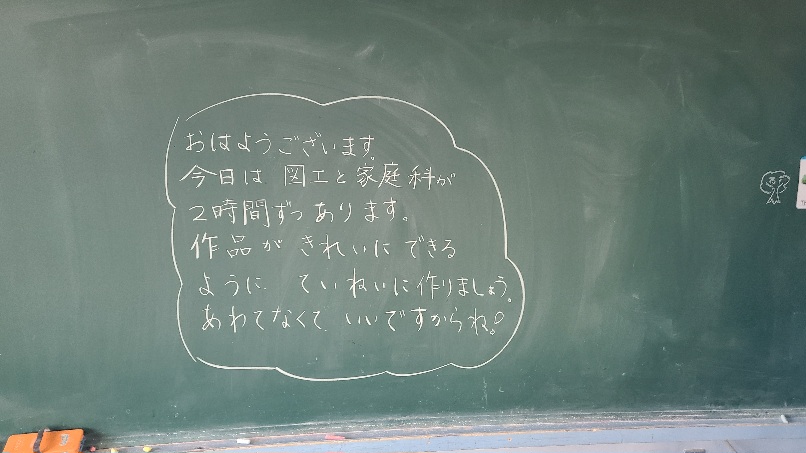 おはようございます。
今日は 図工と家庭科が
2時間ずつ あります。
作品が きれいに できる
ように ていねいに 作りましょう。
あわてなくて いいですからね。